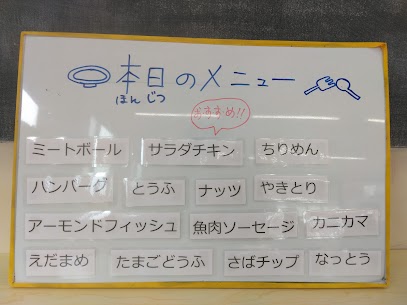 本日のメニュー
ほんじつ
おすすめ!!
ミートボール サラダチキン ちりめん
ハンバーグ とうふ ナッツ やきとり
アーモンドフィッシュ 魚肉ソーセージ カニカマ
えだまめ たまごどうふ さばチップ なっとう